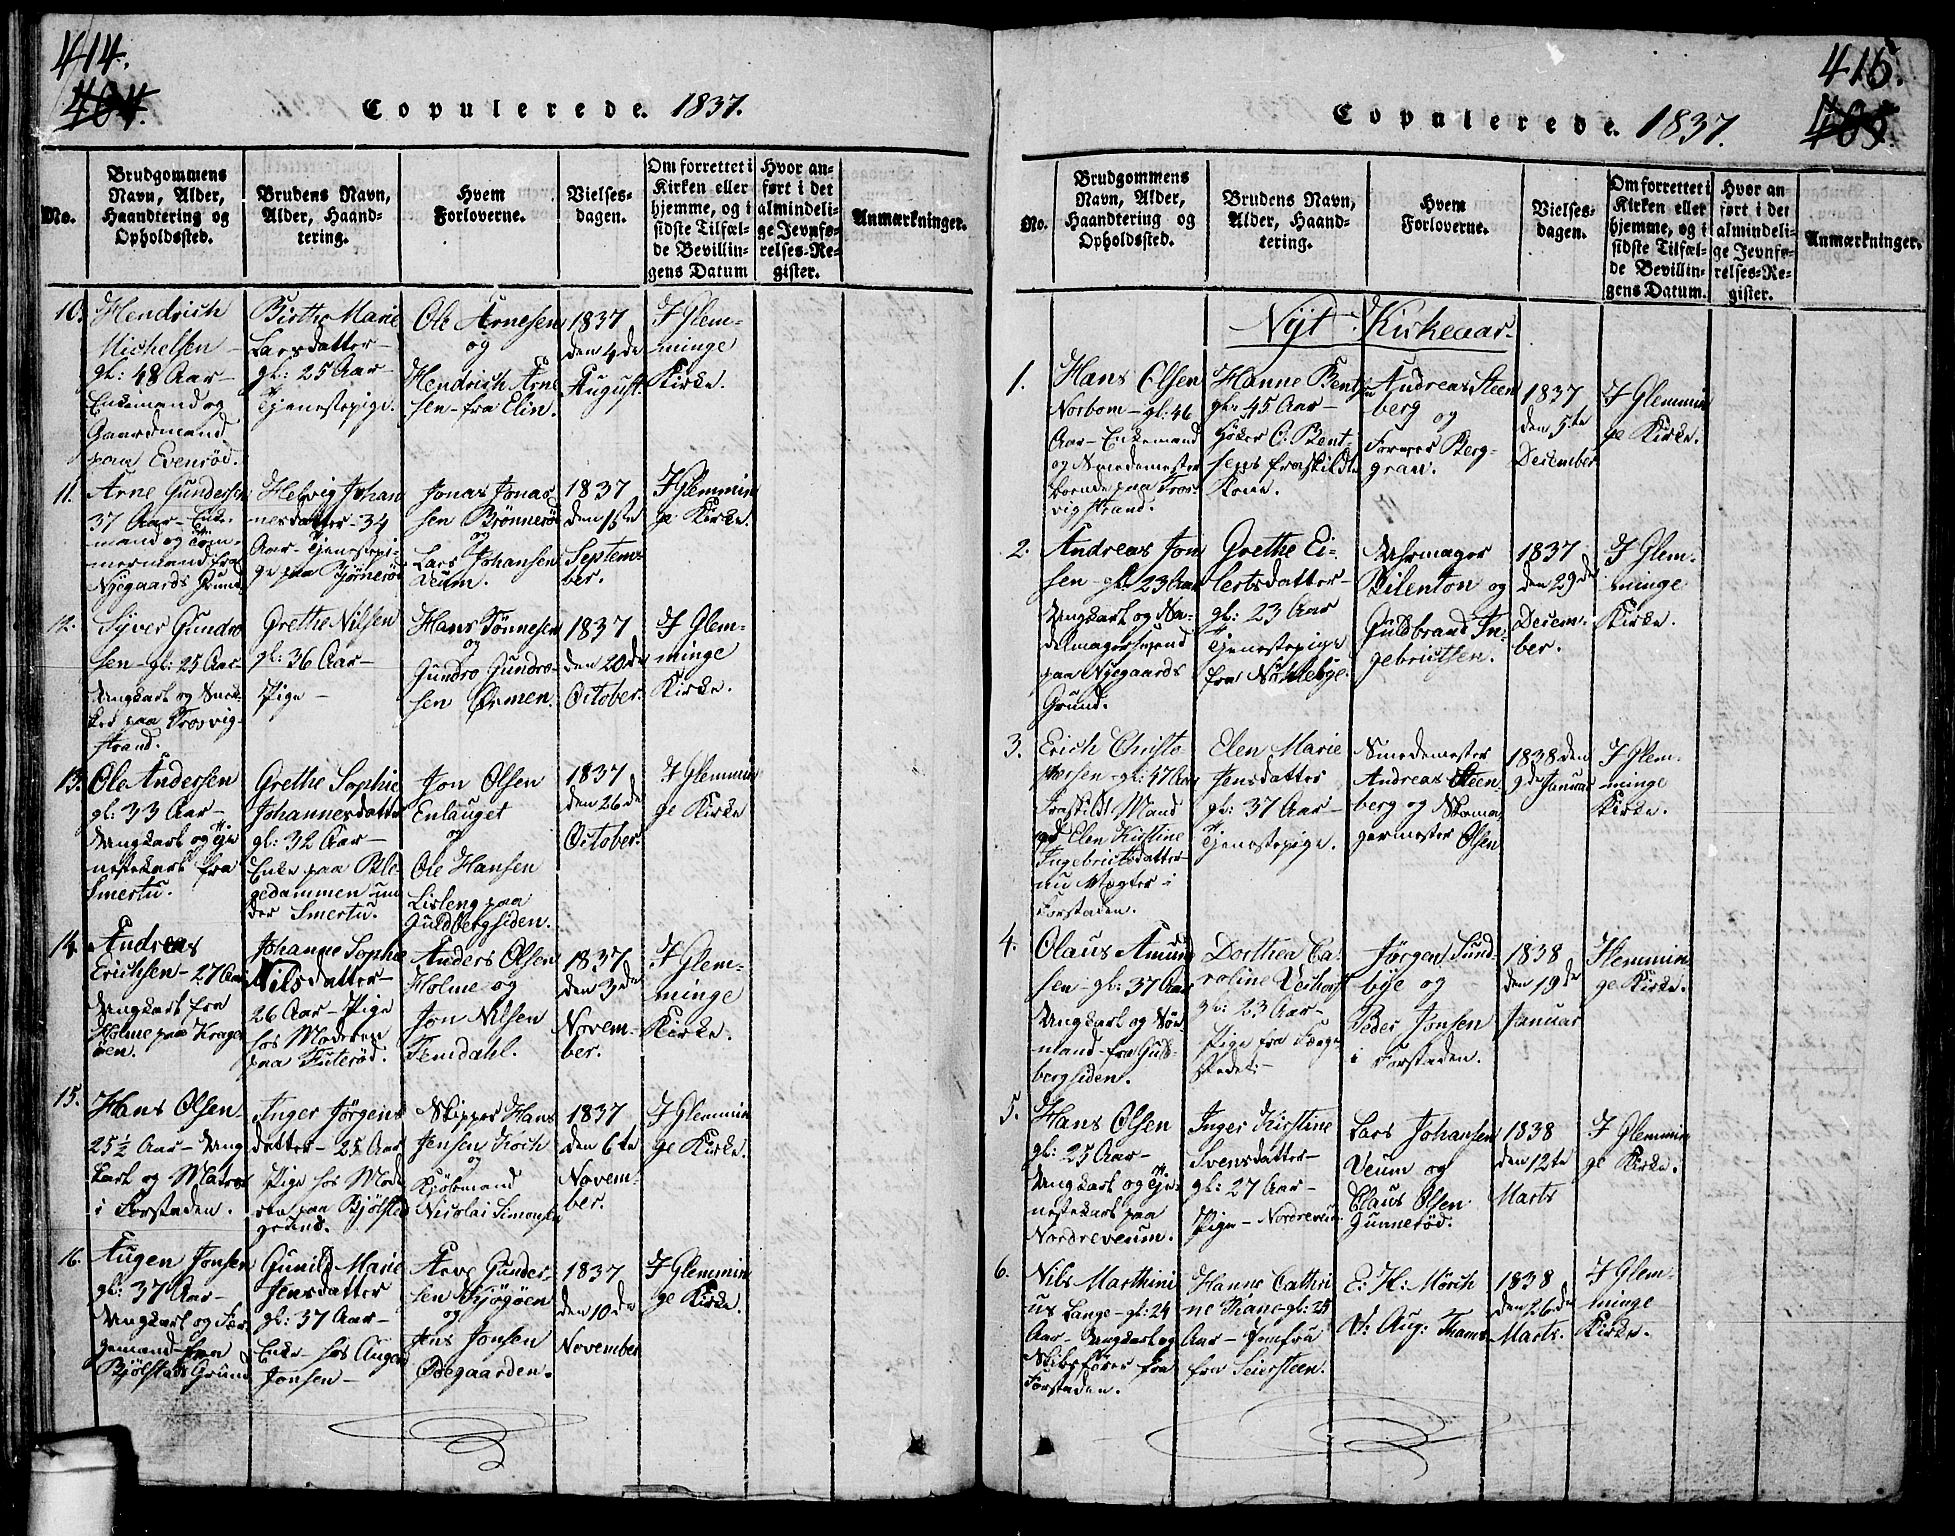 414.
404.
Copulerede. 1837.
No.
Brudgommens
Navn, Alder,
Haandtering og
Opholdssted.
Brudens Navn,
Alder, Haand-
tering.
Hvem
Forloverne.
Vielses-
dagen.
Om forrettet i
Kirken eller
hjemme, og i
sidste Tilfæl-
de Bevillin-
gens Datum
Hvor an-
ført i det
almindeli-
ge Jevnfø-
relses-Re-
gister.
Anmærkninger.
10.
Hendrich
Michelsen
gl: 48 Aar-
Enkemand og
Gaardmand
paa Evenrød.
Birthe Marie
Larsdatter-
gl: 25 Aar-
Tjenestepige.
Ole Arnesen
og
Hendrich Arne
sen- fra Elin.
1837
den 4de
August.
I Glem-
minge
Kirke.
11.
Arne Gundersen
37 Aar- Enke-
mand og Tøm-
mermand fra
Nygaards Grund
Helvig Johan
nesdatter- 34
Aar- Tjenestepi-
ge paa Bjørnerød
Jonas Jonas
sen Brønnerød
og
Lars Johansen
Veum.
1837
den 1ste
Septem-
ber.
I Glemmin
ge Kirke.
12.
Syver Gundro
sen- gl: 25 Aar-
Ungkarl og Snek
ker paa Trosvig-
strand.
Grethe Nilsen
gl: 36 Aar-
Pige-
Hans Tønnesen
og
Gundro Gundro-
sen Ørmen.
1837
den 20de
October.
I Glem-
minge
Kirke.
13.
Ole Andersen
gl: 33 Aar-
Ungkarl og Tje
nestekarl fra
Smertu.
Grethe Sophie
Johannesdatter
gl: 32 Aar-
Enke paa Ble-
gedammen un-
der Smertu.
Jon Olsen
Enlauget
og
Ole Hansen
Lisleng paa
Guldbergsiden.
1837
den 26de
October.
I Glemmin
ge Kirke
14.
Andreas
Erichsen- 27 Aar
Ungkarl fra
Holme paa Krager
øen.
Johanne Sophie
Nilsdatter-
26 Aar- Pige
hos Moderen
paa Futerød.
Anders Olsen
Holme og
Jon Nilsen
Femdahl.
1837
den 3de
Novem-
ber.
I Glem-
minge
Kirke.
15.
Hans Olsen
25½ Aar- Ung
karl og Matros
i Forstaden.
Inger Jørgens
datter- 25 Aar
Pige hos Mode
ren paa Bjølstad
grund.
Skipper Hans
Jensen Koch
og
Kjøbmand
Nicolai Simonsen
1837
den 6te
Novem-
ber.
I Glemmin
ge Kirke.
16.
Augen Jonsen
gl: 37 Aar-
Ungkarl og Fær
gemand fra
Bjølstads Grund
Gunild Marie
Jensdatter
gl: 37 Aar-
Enke hos Augen
Jonsen-
Arve Gunder-
sen Kjøgøen
og
Jens Jonsen
Ødegaarden.
1837
den 10de
November
I Glemmin
ge Kirke.
415.
405.
Copulerede. 1837.
No.
Brudgommens
Navn, Alder,
Haandtering og
Opholdssted.
Brudens Navn,
Alder, Haand-
tering.
Hvem
Forloverne.
Vielses-
dagen.
Om forrettet i
Kirken eller
hjemme, og i
sidste Tilfæl-
de Bevillin-
gens Datum.
Hvor an-
ført i det
almindeli-
ge Jevnfø-
relses-Re-
gister.
Anmærkninger.
Nyt Kirkeaar.
1.
Hans Olsen
Norbom- gl: 46
Aar- Enkemand
og Smedemester
boende paa Tros-
vigstrand.
Hanne Bentzen
gl: 45 Aar-
Høker C. Bent-
sens fraskildte
Kone.
Andreas Steen
berg
og
Berg-
gran.
1837
den 5te
December
I Glemmin
ge Kirke.
2.
Andreas Jon
sen- gl: 23 Aar
Ungkarl og Na-
delmagersvend
paa Nygaards
Grund.
Grethe Ei-
lertsdatter-
gl: 23 Aar
Tjenestepige
fra Nøkleby.
Uhrmager
Bilenton og
Guldbrand In-
gebrietsen.
1837
den 29de
Decem-
ber.
I Glem-
minge
Kirke.
3.
Erich Christo
phersen- gl: 47 Aar
Fraskildt Mand
Elen Kistine
Ingebrietsdatter-
nu Vægter i
Forstaden.
Elen Marie
Jensdatter
gl: 37 Aar-
Tjenestepige.
Smedemester
Andreas Steen
berg og Skoma
germester Olsen
1838 den
9de Januar
I Glem-
minge
Kirke.
4.
Olaus Amund
sen- gl: 37 Aar
Ungkarl og Sø-
mand fra Gul-
bergsiden.
Dorthea Ca-
roline
gl: 23 Aar-
Pige fra Færge-
stedet-
Jørgen Sund-
bye og
Peder Jonsen
i Forstaden.
1838
den 19de
Januar
I Glemmin
ge Kirke.
5.
Hans Olsen
gl: 25 Aar-
Ungkarl og Tje-
nestekarl paa
Nordreveum.
Inger Kirstine
Svensdatter-
gl: 27 Aar-
Pige- Nordreveum
Lars Johansen
Veum og
Claus Olsen
Gunnerød.
1838
den 12te
Marts
I Glemmin
ge Kirke.
6.
Nils Marthini
us Lange- gl: 24
Aar- Ungkarl og
Skibsfører fra
Forstaden.
Hanne Cathri
ne Thane- gl: 25
Aar- Jomfru
fra Seiersteen.
E: H: Mørch
N: Aug: Thams
1838
den 26de
Marts.
I Glem-
minge
Kirke.